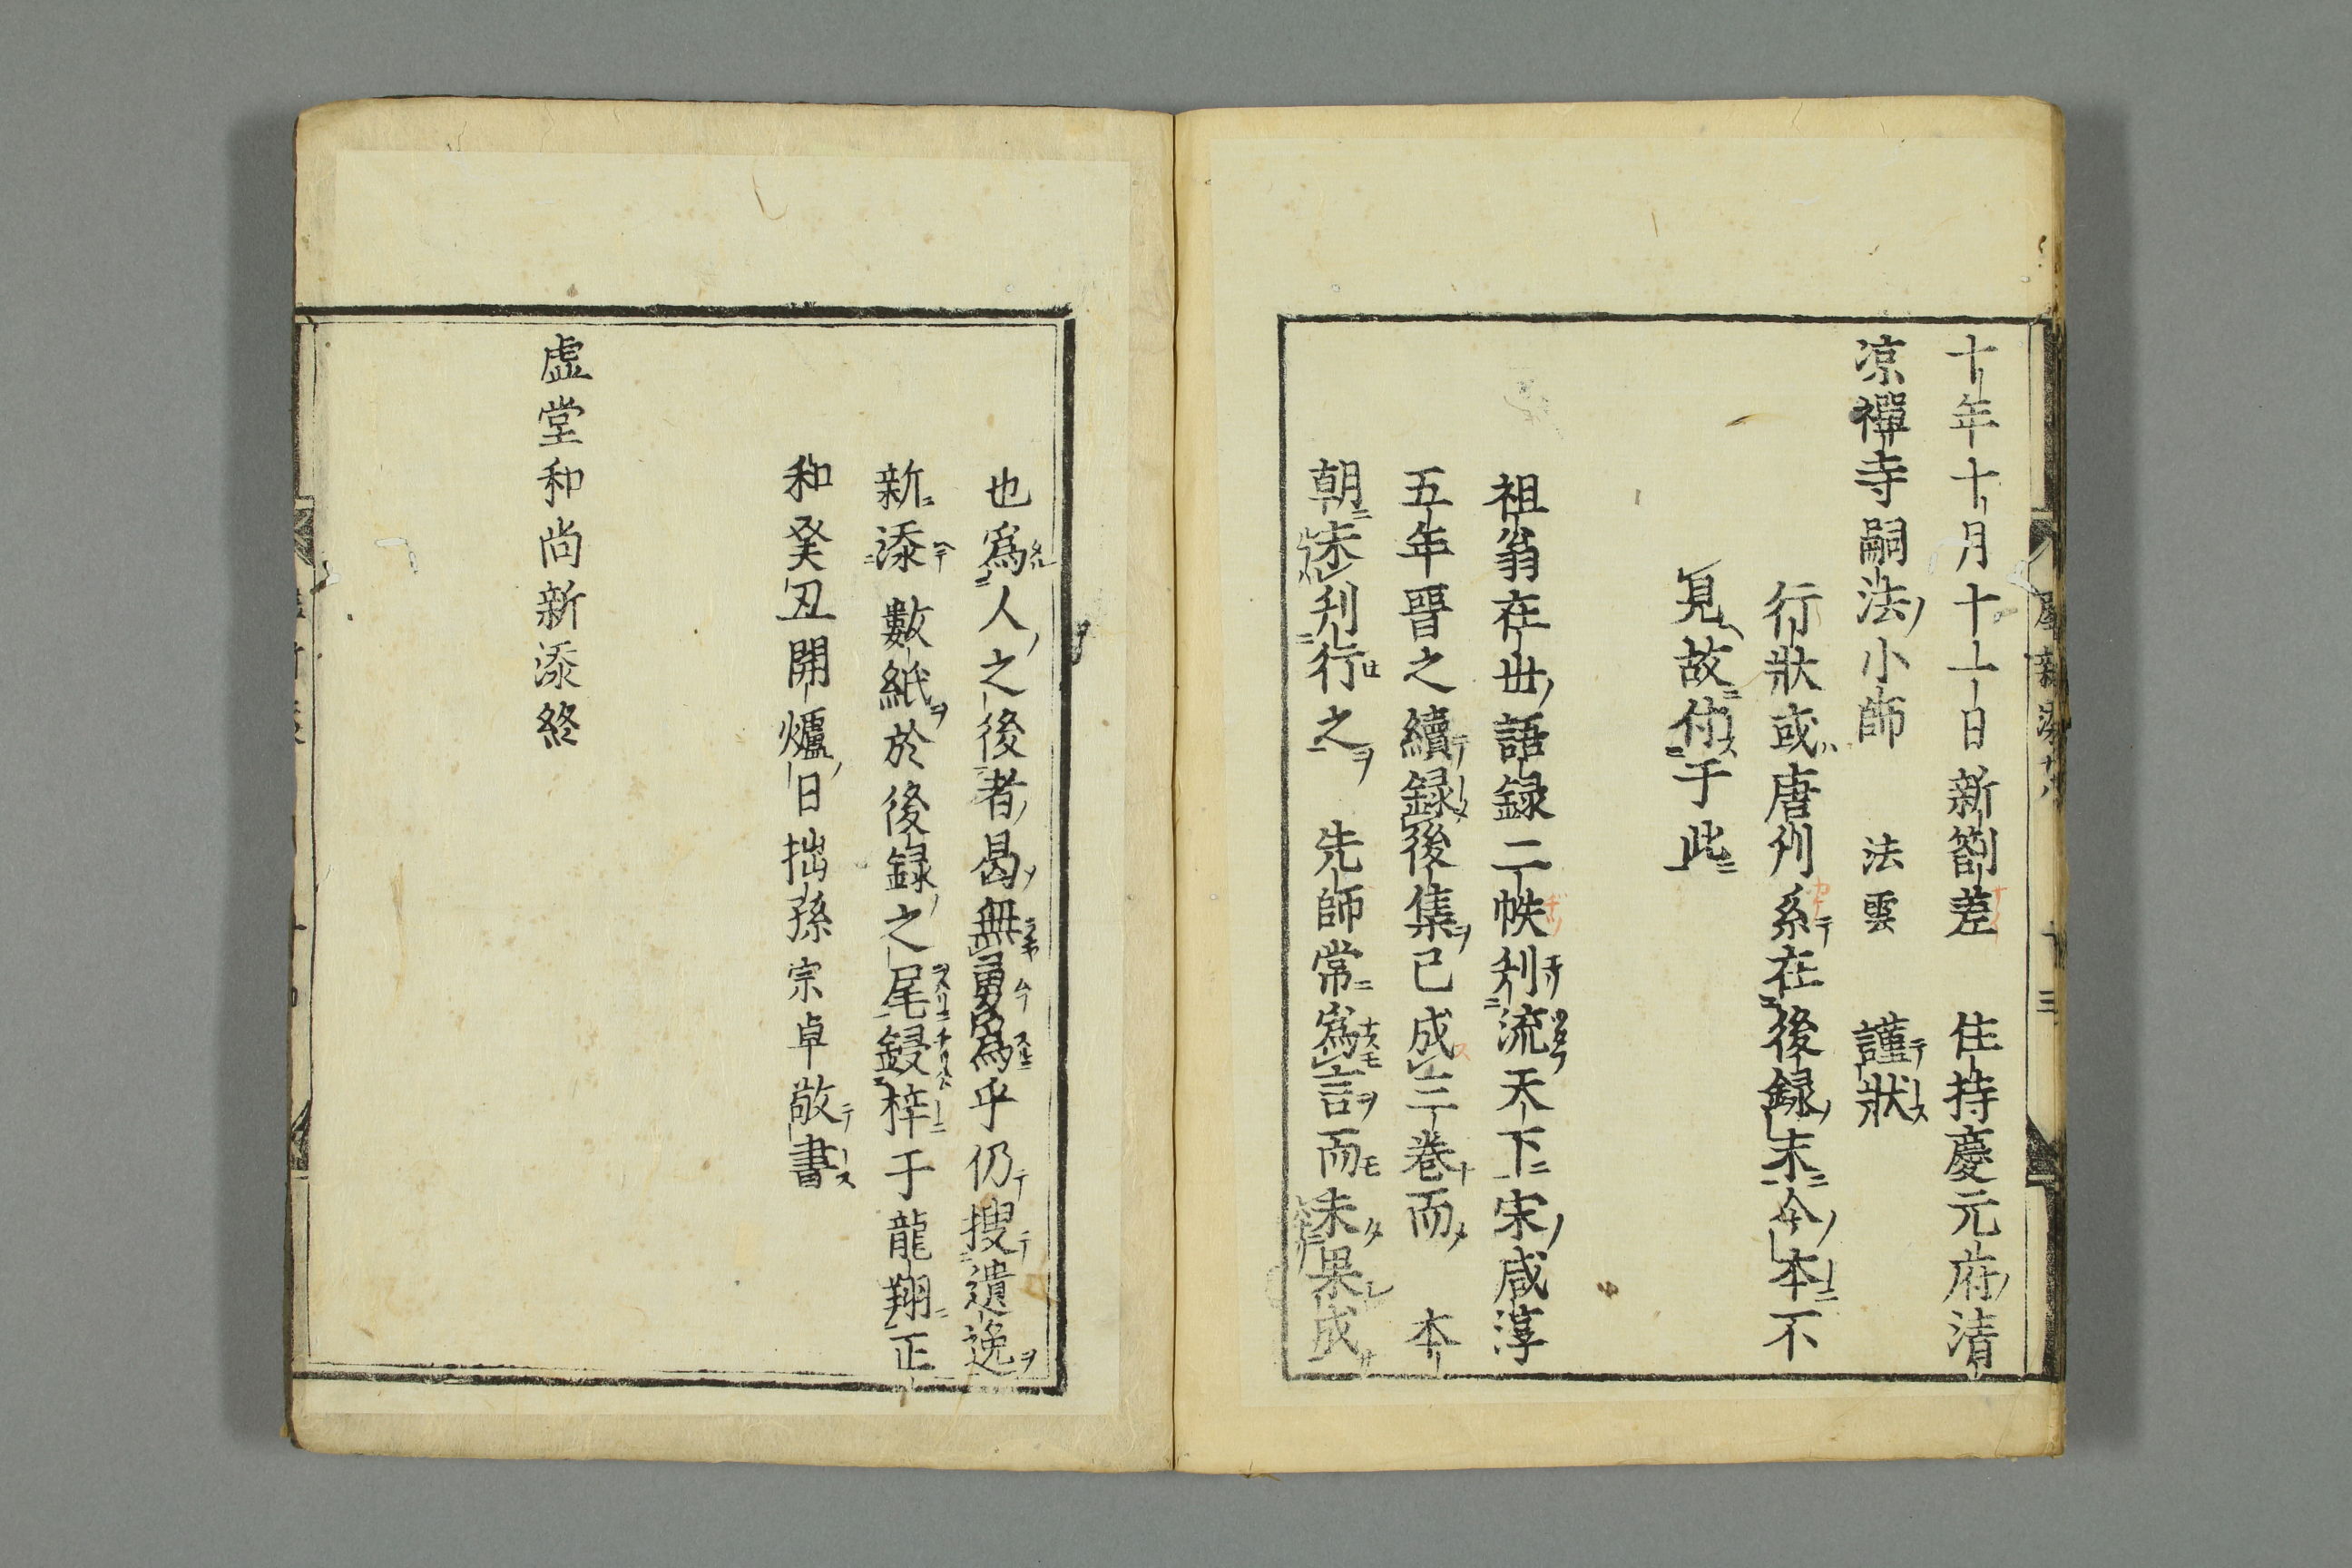 十年十月十一日新劄差　住持慶元府清
凉禪寺嗣法小師　法雲　謹狀
行狀或唐刋系在後録末今本不
見故付于此
祖翁在世語録二帙刊流天下宋咸淳
五年晉之續録後集已成三巻而　本
朝未刋行之　先師常爲言而未果成
也爲人之後者曷無勇爲乎仍搜遺逸
新添數紙於後録之尾鋟梓于龍翔正
和癸丑開爐日拙孫宗卓敬書
虚堂和尚新添終